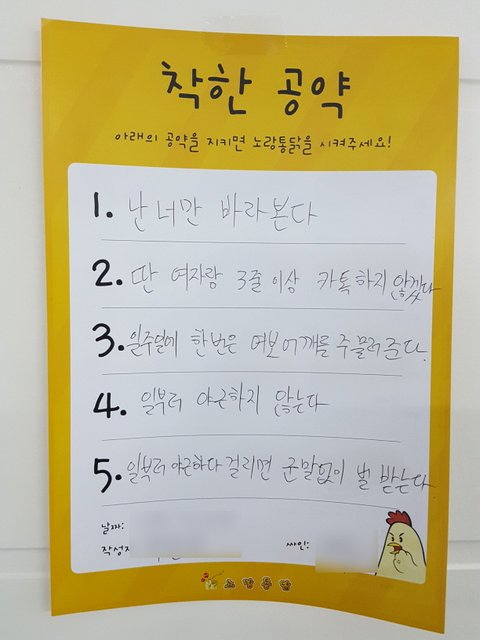 착한 공약
아래의 공약을 지키면 노랑통닭을 시켜주세요!
1. 난 너만 바라본다
2. 딴 여자랑 3줄 이상 카톡하지 않겠다
3. 일주일에 한번은 여보 어깨를 주물러준다.
4. 일부러 야근하지 않는다
5. 일부러 야근하다 걸리면 군말없이 벌 받는다
날짜:
싸인:
노랑통닭